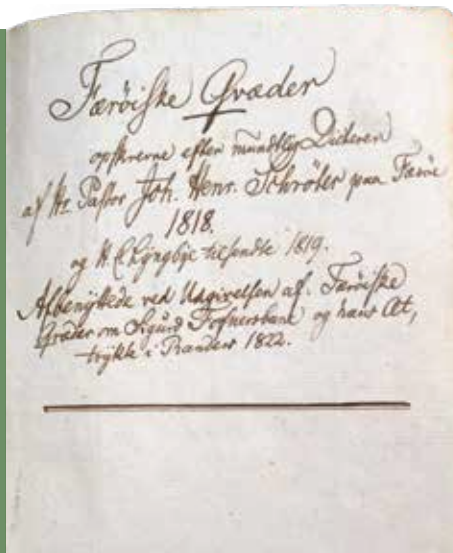 Færöiske Qvæder
opskrevne efter mundtlig Dicteren
af Hr. Pastor Joh. Henr. Schröter paa Færöe
1818.
og H. C. Lyngbye tilsendte 1819.
Afbenyttede ved Udgivelsen af: Færöiske
Qvæder om Sigurd Fofnersbane og hans Æt,
trykte i Randers 1822.